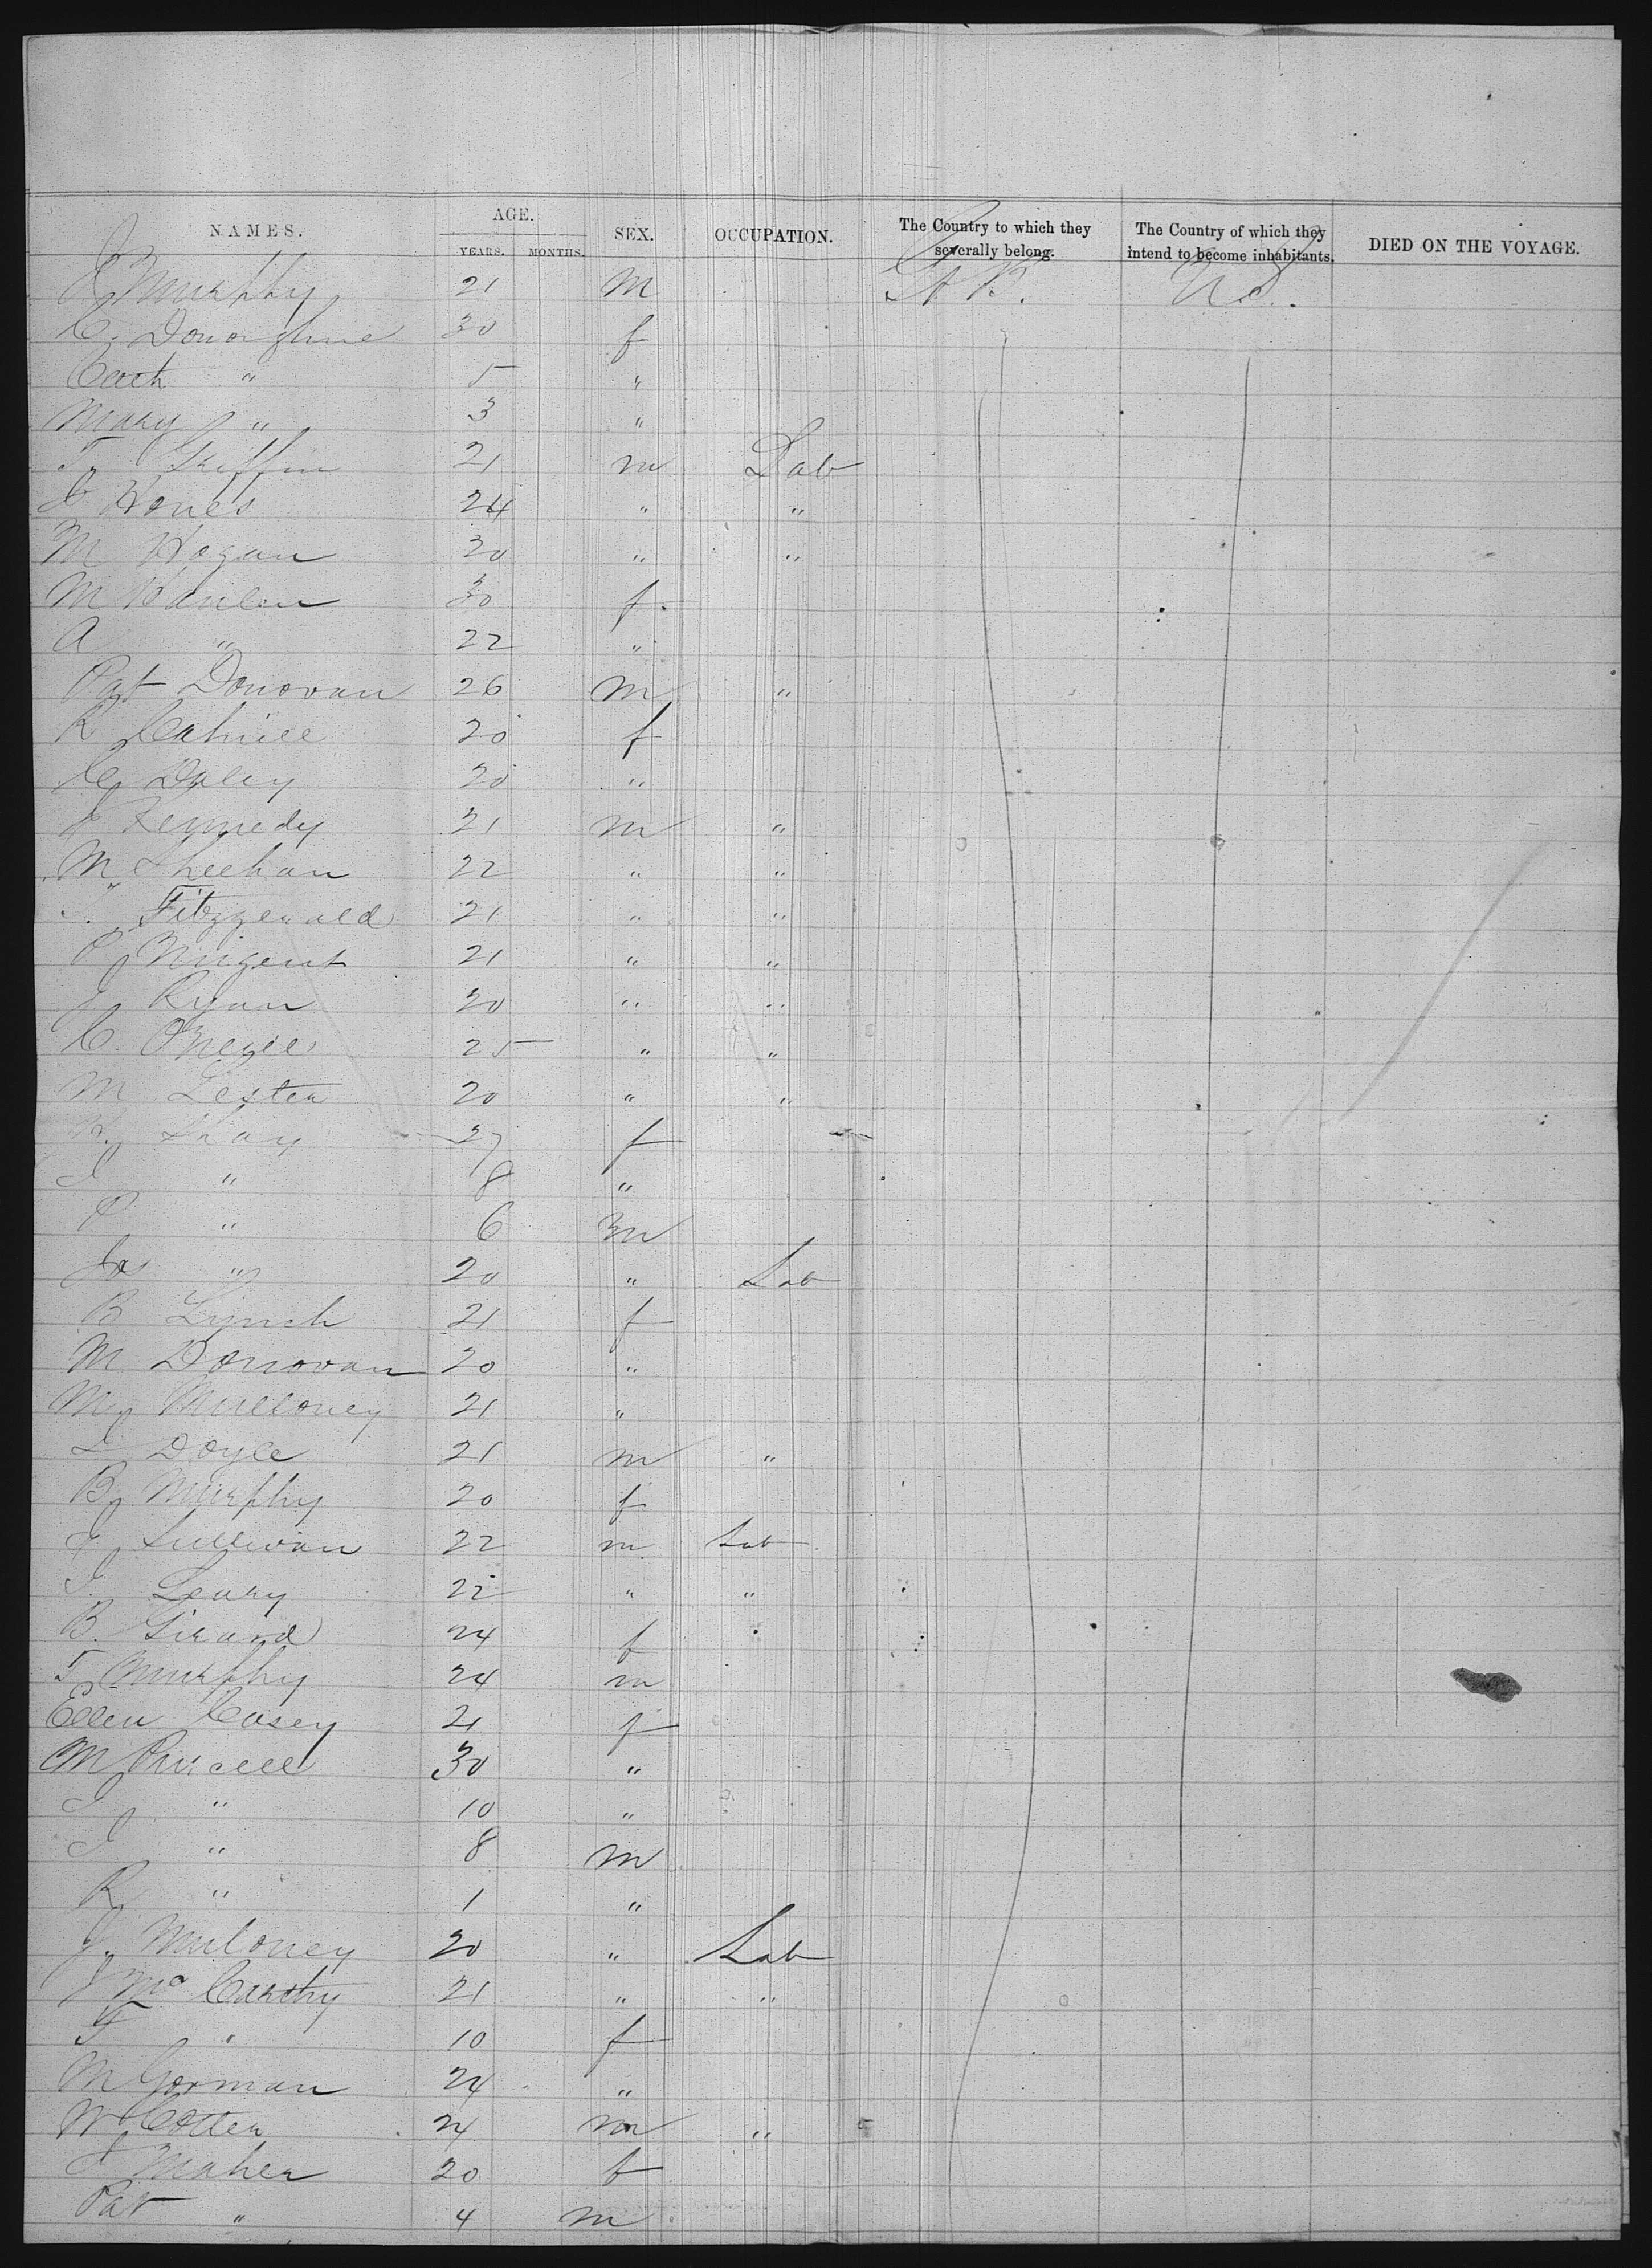 NAMES. AGE. YEARS. MONTHS. SEX. OCCUPATION. The Country to which they severally belong. The Country of which they intend to become inhabitants. DIED ON THE VOYAGE.
J Murphy 21 m G. B. U.S.
C. Donoghue 30 f
Cath " 5 "
Mary " 3 "
T. Griffin 21 m Lab
J Hones 24 " "
M Hogan 20 " "
M Hanlon 30 f
A " 22 "
Pat Donovan 26 m "
K Cahill 20 f
C Daley 20 "
J Kennedy 21 m "
M Sheehan 22 " "
Fitzgerald 21 " "
P Nugent 21 " "
J Ryan 20 " "
C. O'Neill 25 " "
M Lester 20 " "
27 f
" 8 "
P " 6 m
Jas " 20 " Lab
B Lynch 21 f
M Donovan 20 "
M Mulloney 21 "
L Doyle 21 m "
B Murphy 20 f
J Sullivan 22 m Lab
J. Leary 22 " "
B. Girard 24 f "
T Murphy 24 m
Ellen Casey 21 f
M Purcell 30 "
J " 10 "
J " 8 m
R " 1 "
J. Muloney 20 " Lab
J McCarthy 21 " "
F " 10 f
M Gorman 24 "
W Cotter 24 m "
J Maher 20 f
Pat " 4 m